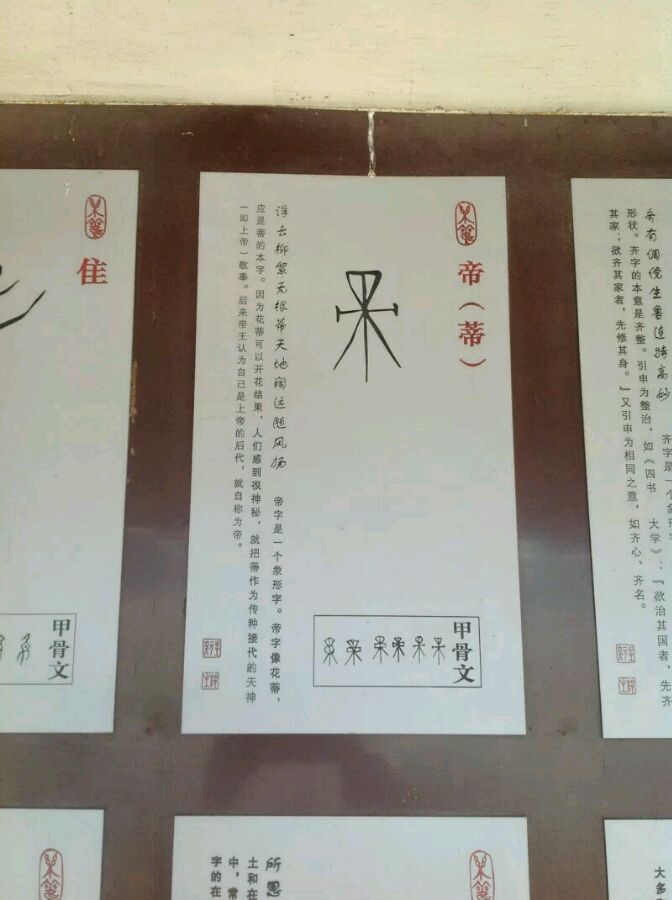 帝（蒂）
浮云柳絮无根蒂天地阔远随风扬
帝字是一个象形字。帝字像花蒂，
应是蒂的本字。因为花蒂可以开花结果，人们感到很神秘，就把蒂作为传种接代的天神
（即上帝）敬奉。后来帝王认为自己是上帝的后代，就自称为帝。
甲骨文
齐有倜傥生鲁连特高妙
齐字是一个象形字
形状。齐字的本意是齐整。引申为整治，如《四书 大学》：『欲治其国者，先齐
其家；欲齐其家者，先修其身。』又引申为相同之意，如齐心、齐名。
隹
甲骨文
所思
土和在
中，常
字的在
大多